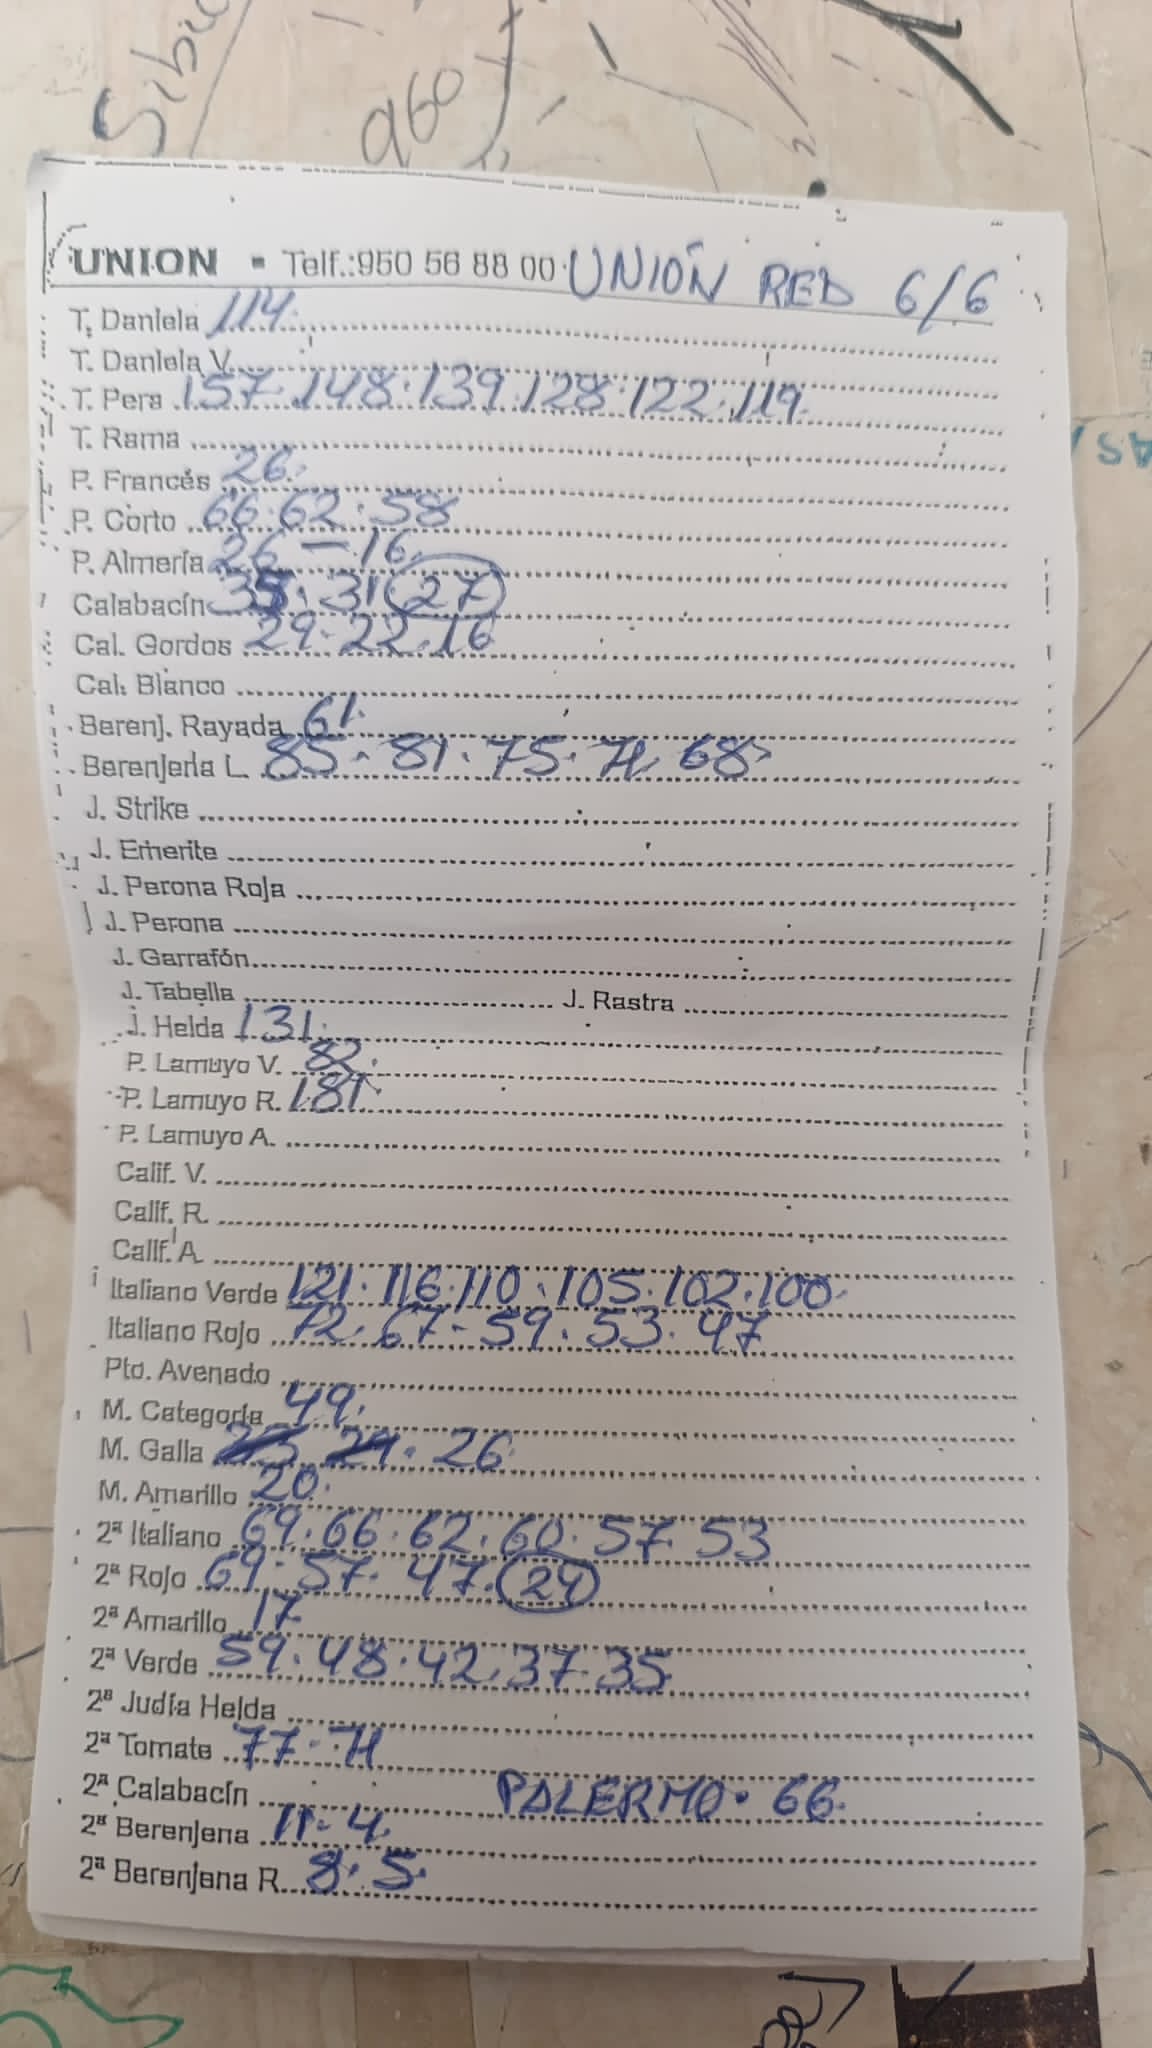 Sibu
960
UNION - Telf.:950 56 88 00 UNIÓN RED 6/6
T. Daniela 114.
T. Daniela V.
T. Pera 157.148.139.128.122.119.
T. Rama
P. Francés 26.
P. Corto 66.62.58
P. Almería 26 - 16.
Calabacín 35. 31 27
Cal. Gordos 29.22.16
Cal. Blanco
Berenj. Rayada 61.
Berenjena L. 85.81.75.71.68
J. Strike
J. Emerite
J. Perona Roja
J. Perona
J. Garrafón
J. Tabella J. Rastra
J. Helda 131.
P. Lamuyo V. 82.
P. Lamuyo R. 181.
P. Lamuyo A.
Calif. V.
Calif. R.
Calif. A.
Italiano Verde 121.116.110.105.102.100.
Italiano Rojo 72.67-59.53.47
Pto. Avenado
M. Categoría 49.
M. Galla 26
M. Amarillo 20.
2ª Italiano 69.66.62.60.57.53
2ª Rojo 69.57.47.24
2ª Amarillo 17
2ª Verde 59.48.42.37.35
2ª Judía Helda
2ª Tomate 77.71
2ª Calabacín PALERMO. 66.
2ª Berenjena 11-4.
2ª Berenjena R. 8.5.